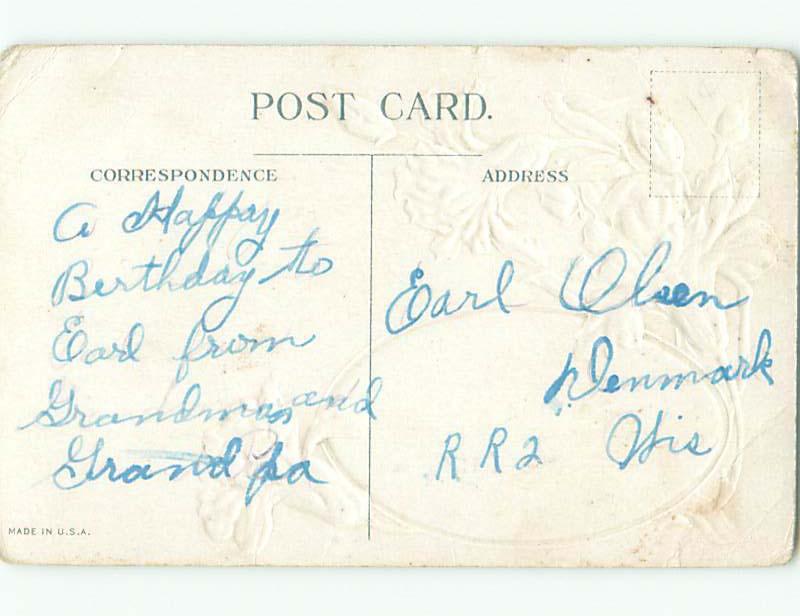 POST CARD.
CORRESPONDENCE
A Happy
Birthday to
Earl from
Grandma and
Grandpa
ADDRESS
Earl Olsen
Denmark
RR2 Wis
MADE IN U.S.A.